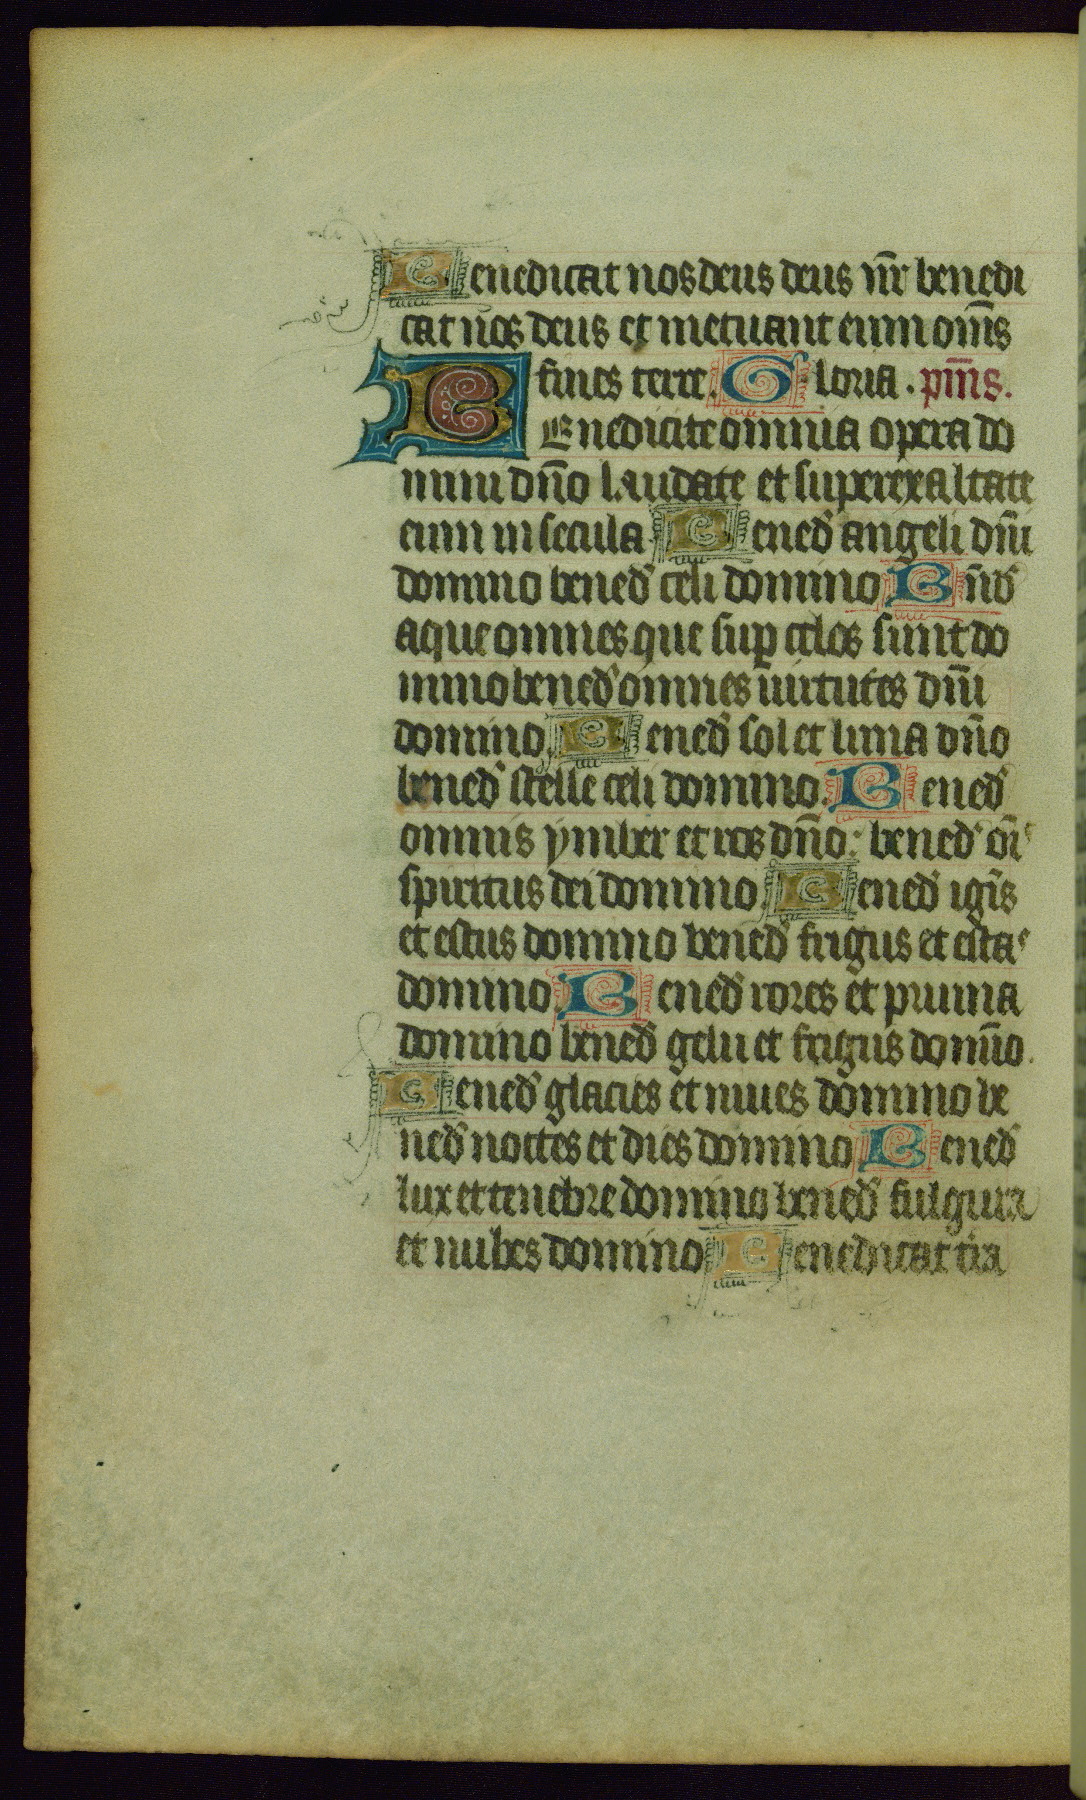 Benedicat nos deus deus nr̄ benedi
cat nos deus et metuant eum om̄s
fines terre. Gloria. pm̄s.
BEnedicite omnia opera do
mini dn̄o laudate et superexaltate
eum in secula. Bened̄ angeli dn̄i
domino bened̄ celi domino Bn̄d̄
aque omnes que sup celos sunt do
mino bened̄ omnes uirtutes dn̄i
domino. Bened̄ sol et luna dn̄o
bened̄ stelle celi domino. Bened̄
omnis ymber et ros dn̄o: bened̄ om̄
spiritus dei domino. Bened̄ ignis
et estus domino bened̄ frigus et esta
domino Bened̄ rores et pruina
domino bened̄ gelu et frigus domīno.
Bened̄ glacies et niues domino be
ned̄ noctes et dies domino Bened̄
lux et tenebre domino bened̄ fulgura
et nubes domino Benedicat tr̄a